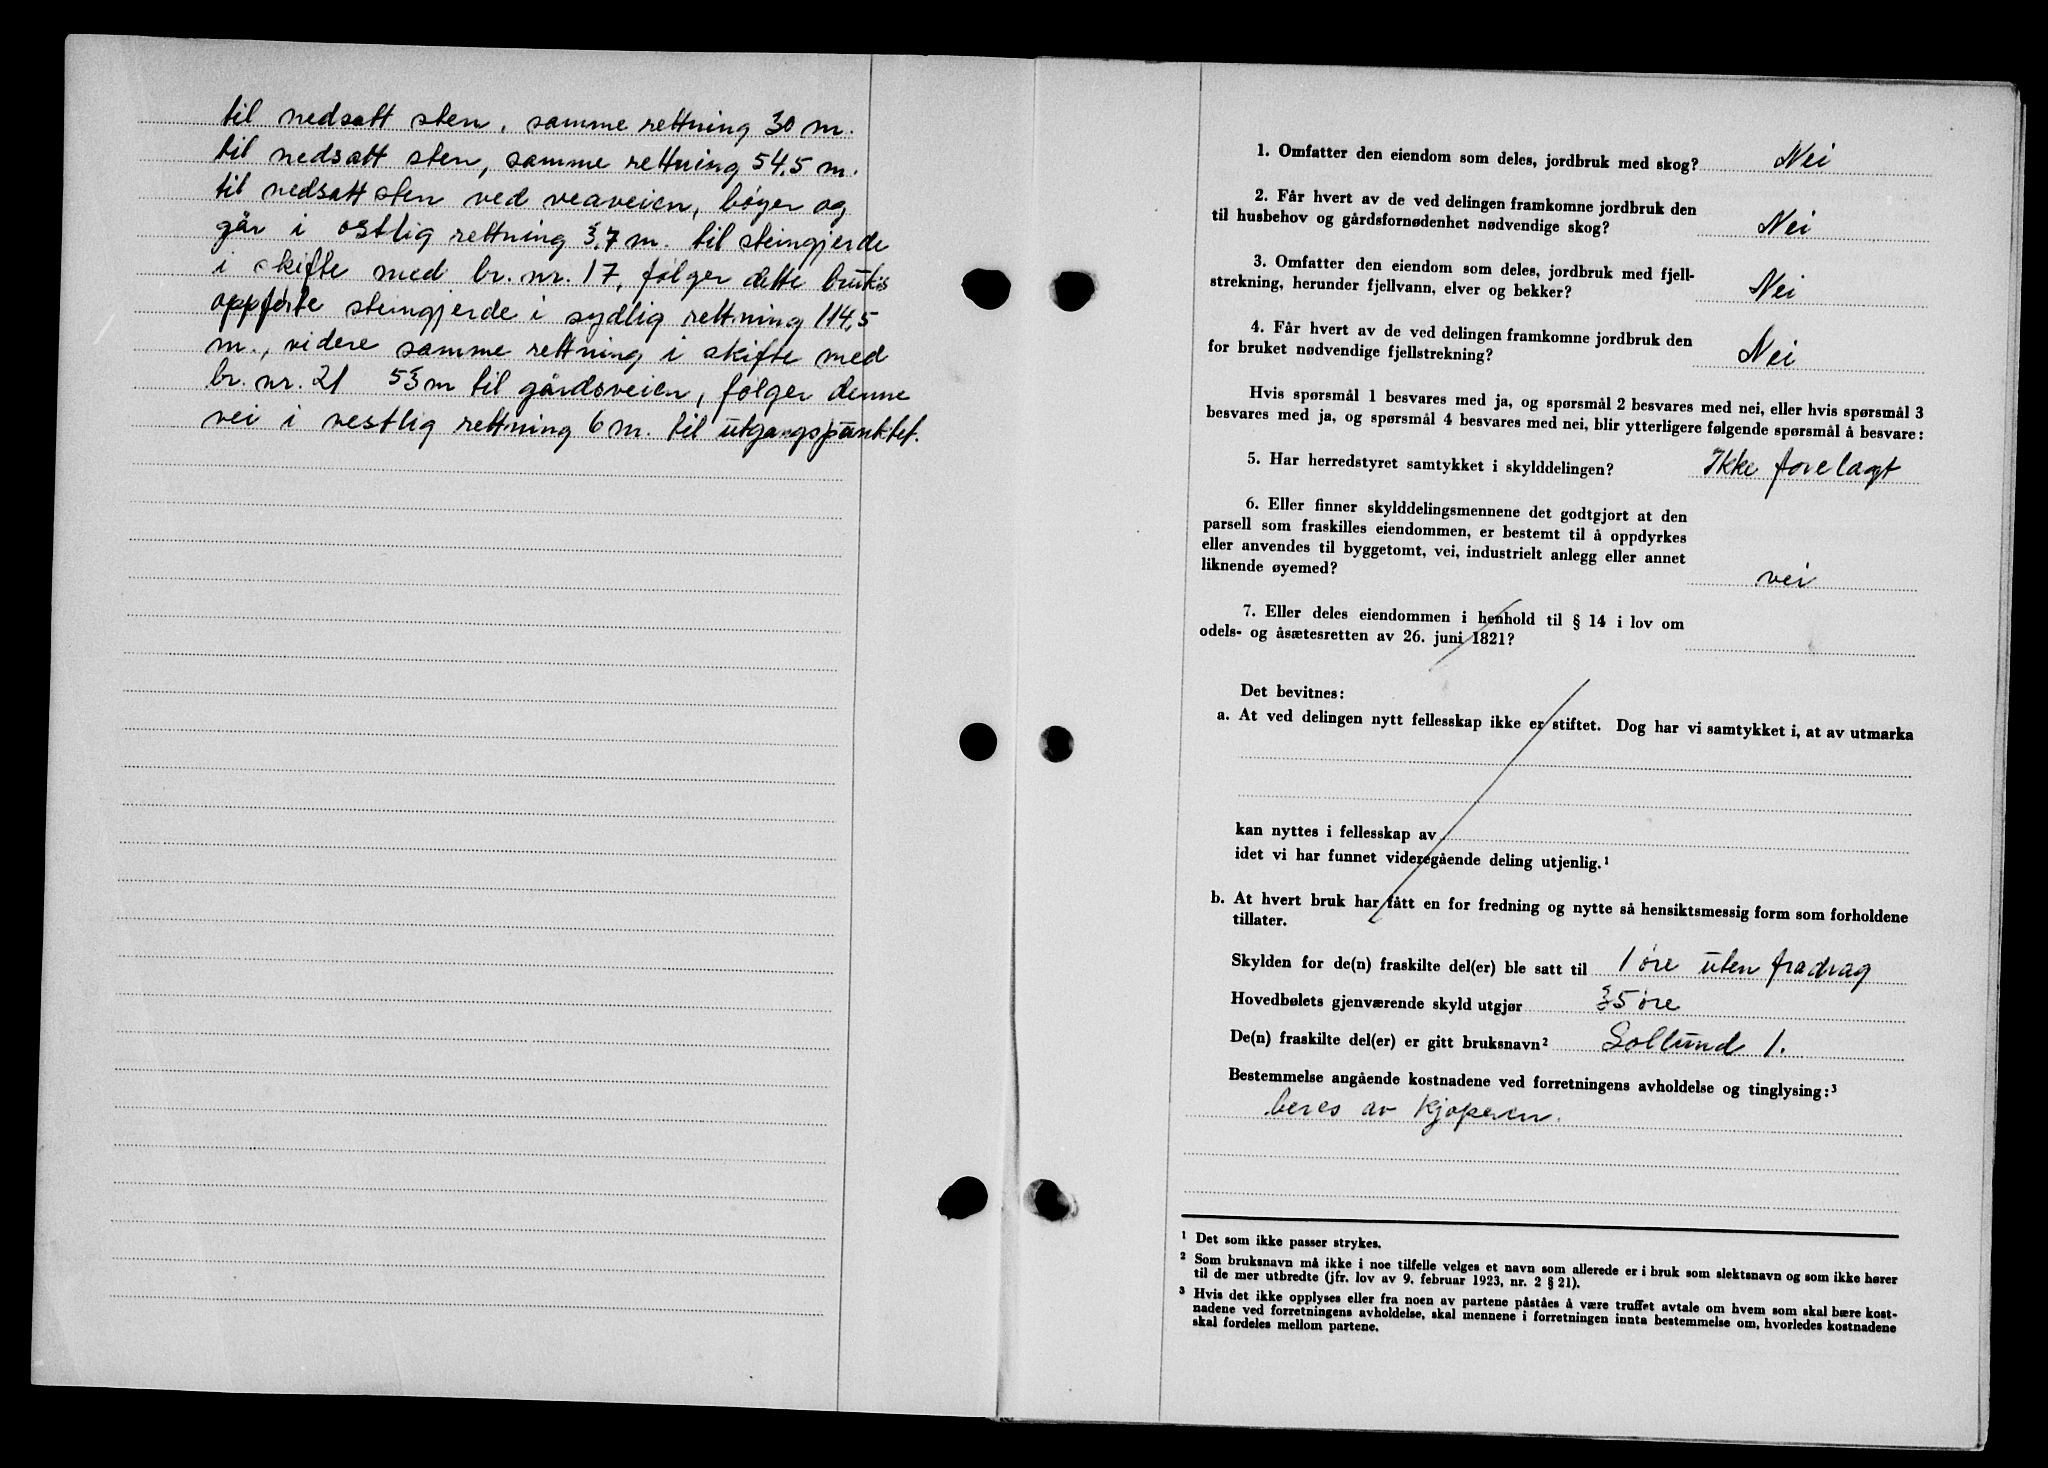 til nedsatt sten, samme rettning 30 m.
til nedsatt sten, samme rettning 54,5 m.
til nedsatt sten ved veaveien, bøyer og
går i østlig rettning 3,7 m. til steingjerde
i skifte med br. nr. 17, følger dette bruks
oppførte steingjerde i sydlig rettning 114,5
m., videre samme rettning i skifte med
br. nr. 21 53 m til gårdsveien, følger denne
vei i vestlig rettning 6 m. til utgangspunktet.
1. Omfatter den eiendom som deles, jordbruk med skog? Nei
2. Får hvert av de ved delingen framkomne jordbruk den
til husbehov og gårdsfornødenhet nødvendige skog? Nei
3. Omfatter den eiendom som deles, jordbruk med fjell-
strekning, herunder fjellvann, elver og bekker? Nei
4. Får hvert av de ved delingen framkomne jordbruk den
for bruket nødvendige fjellstrekning? Nei
Hvis spørsmål 1 besvares med ja, og spørsmål 2 besvares med nei, eller hvis spørsmål 3
besvares med ja, og spørsmål 4 besvares med nei, blir ytterligere følgende spørsmål å besvare:
5. Har herredstyret samtykket i skylddelingen? Ikke forelagt
6. Eller finner skylddelingsmennene det godtgjort at den
parsell som fraskilles eiendommen, er bestemt til å oppdyrkes
eller anvendes til byggetomt, vei, industrielt anlegg eller annet
liknende øyemed? vei
7. Eller deles eiendommen i henhold til § 14 i lov om
odels- og åsætesretten av 26. juni 1821?
Det bevitnes:
a. At ved delingen nytt fellesskap ikke er stiftet. Dog har vi samtykket i, at av utmarka
kan nyttes i fellesskap av
idet vi har funnet videregående deling utjenlig.¹
b. At hvert bruk har fått en for fredning og nytte så hensiktsmessig form som forholdene
tillater.
Skylden for de(n) fraskilte del(er) ble satt til 1 øre uten fradrag
Hovedbølets gjenværende skyld utgjør 35 øre
De(n) fraskilte del(er) er gitt bruksnavn² Sollund 1.
Bestemmelse angående kostnadene ved forretningens avholdelse og tinglysing:³
beres av kjøperen.
¹ Det som ikke passer strykes.
² Som bruksnavn må ikke i noe tilfelle velges et navn som allerede er i bruk som slektsnavn og som ikke hører
til de mer utbredte (jfr. lov av 9. februar 1923, nr. 2 § 21).
³ Hvis det ikke opplyses eller fra noen av partene påståes å være truffet avtale om hvem som skal bære kost-
nadene ved forretningens avholdelse, skal mennene i forretningen innta bestemmelse om, hvorledes kostnadene
skal fordeles mellom partene.